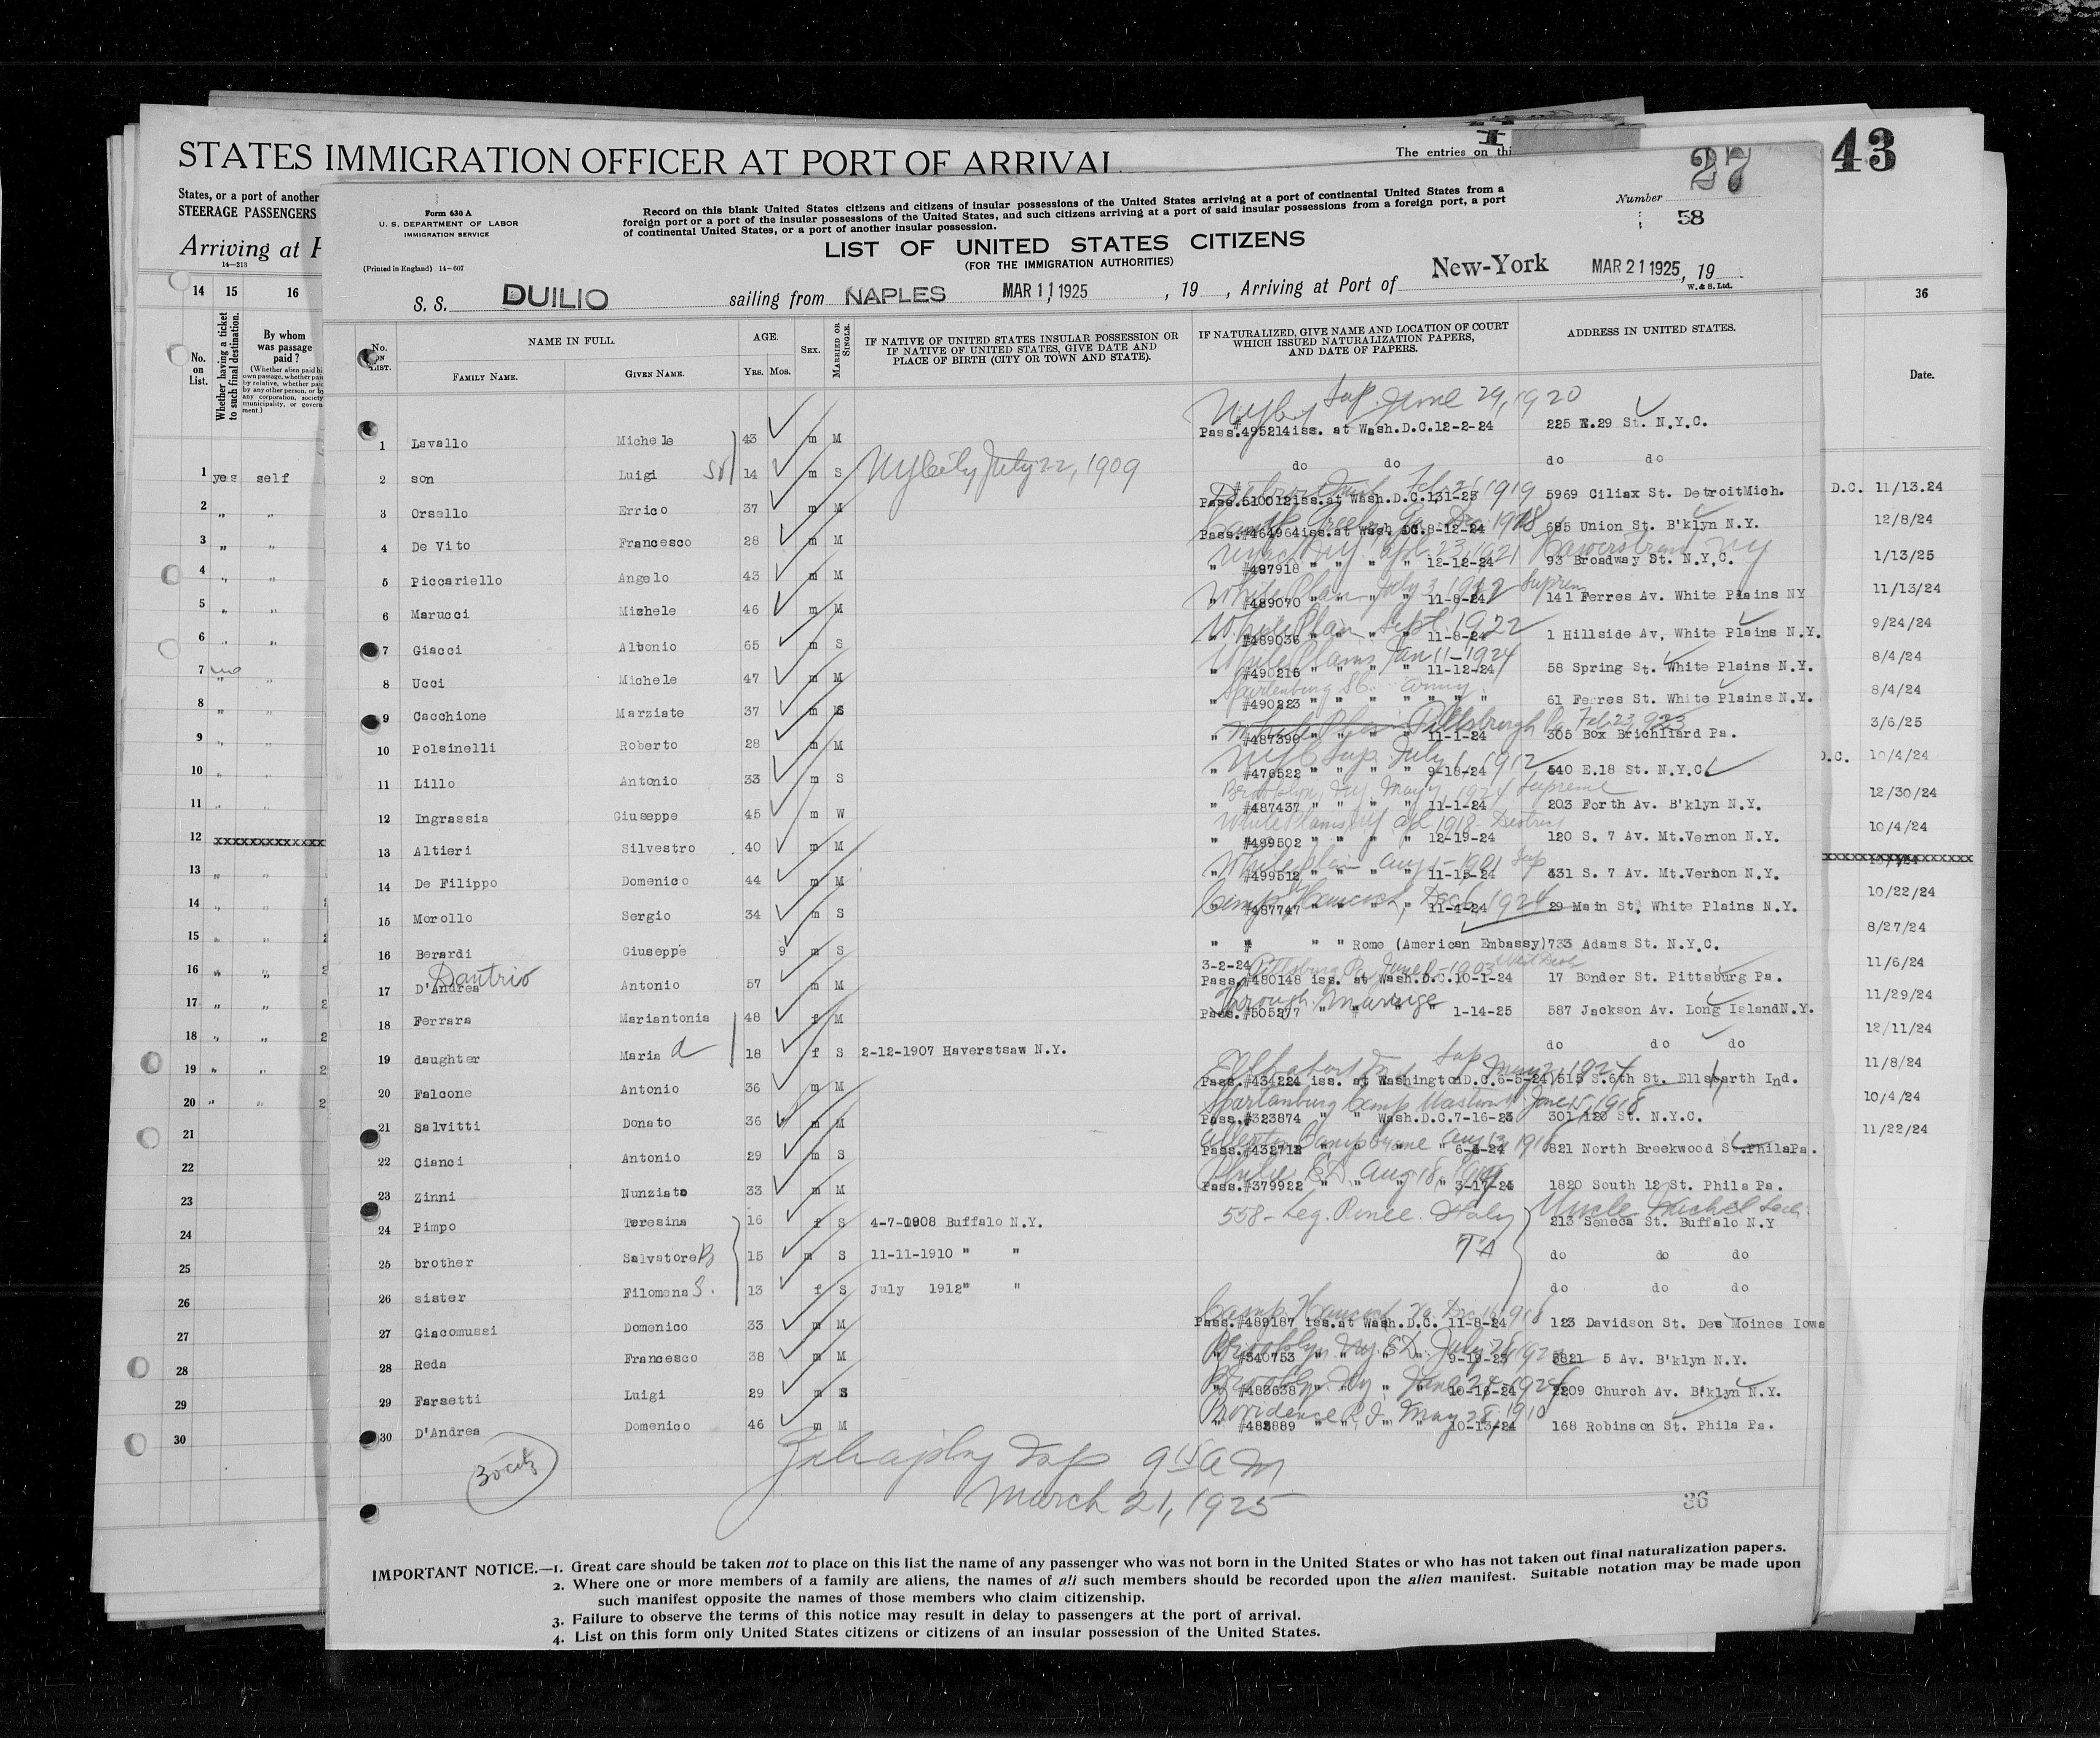 STATES IMMIGRATION OFFICER AT PORT OF ARRIVAL
The entries on thi
43
27
States, or a port of another
STEERAGE PASSENGERS
Arriving at
14-213
Form 630 A
U. S. DEPARTMENT OF LABOR
IMMIGRATION SERVICE
(Printed in England) 14-607
Record on this blank United States citizens and citizens of insular possessions of the United States arriving at a port of continental United States from a
foreign port or a port of the insular possessions of the United States, and such citizens arriving at a port of said insular possessions from a foreign port, a port
of continental United States, or a port of another insular possession.
Number
58
LIST OF UNITED STATES CITIZENS
(FOR THE IMMIGRATION AUTHORITIES)
S. S. DUILIO sailing from NAPLES MAR 11 1925, 19 , Arriving at Port of New-York MAR 21 1925, 19
W. & S. Ltd.
14 15 16
No. on List.
Whether having a ticket to such final destination.
By whom was passage paid?
(Whether alien paid hi
own passage, whether pai
by relative, whether paid
by any other person, or by
any corporation, society
municipality, or govern
ment.)
36
Date.
No. ON LIST.
NAME IN FULL.
FAMILY NAME.
GIVEN NAME.
AGE.
YRS. MOS.
SEX.
MARRIED OR SINGLE.
IF NATIVE OF UNITED STATES INSULAR POSSESSION OR
IF NATIVE OF UNITED STATES, GIVE DATE AND
PLACE OF BIRTH (CITY OR TOWN AND STATE).
IF NATURALIZED, GIVE NAME AND LOCATION OF COURT
WHICH ISSUED NATURALIZATION PAPERS,
AND DATE OF PAPERS.
ADDRESS IN UNITED STATES.
Sup. June 29, 1920
1 Lavallo Michele 43 m M Pass.#495214iss. at Wash.D.C.12-2-24 225 E.29 St. N.Y.C.
2 son Luigi 14 m S NYCity July 22, 1909 do do do do
3 Orsello Errico 37 m M Pass.510012iss.at Wash.D.C.131-25 5969 Ciliax St. DetroitMich.
4 De Vito Francesco 28 m M Pass.#464964iss.at Wash DC.8-12-24 695 Union St. B'klyn N.Y.
Apl. 23, 1921
5 Piccariello Angelo 43 m M " #497918 " " " " 12-12-24 93 Broadway St. N.Y.C.
White Plain July 3, 1912 Suprem
6 Marucci Michele 46 m M " #489070 " " " 11-8-24 141 Ferres Av. White Plains NY
White Plain Sept. 1922
7 Giacci Altonio 65 m S " #489036 " " " " 11-8-24 1 Hillside Av, White Plains N.Y.
White Plains Jan 11-1924
8 Ucci Michele 47 m M " #490215 " " " " 11-12-24 58 Spring St. White Plains N.Y.
Spartenburg S.C. Army
9 Cacchione Marziate 37 m S " #490223 " " " " " " " 61 Ferres St. White Plains N.Y.
Pittsburgh Pa Feb 23, 923
10 Polsinelli Roberto 28 m M " #487399 " " " 11-1-24 305 Box Brichliard Pa.
NYC Sup. July 1, 1912
11 Lillo Antonio 33 m S " #476522 " " " " 9-18-24 540 E.18 St. N.Y.C.
Brooklyn, NY May 1, 1924 Supreme
12 Ingrassia Giuseppe 45 m W " #487437 " " " " 11-1-24 203 Forth Av. B'klyn N.Y.
White Plains NY Apl 1918 District
13 Altieri Silvestro 40 m M " #499502 " " " " 12-19-24 120 S. 7 Av. Mt.Vernon N.Y.
White plain Aug 1-1901 Sup
14 De Filippo Domenico 44 m M " #499512 " " " " 11-15-24 431 S. 7 Av. Mt.Vernon N.Y.
Camp Hancock, Dec 6, 1924
15 Morollo Sergio 34 m S #487747 " " " " 11-4-24 29 Main St. White Plains N.Y.
16 Berardi Giuseppe 9 m S " # " " Rome (American Embassy) 733 Adams St. N.Y.C.
3-2-24 Pittsburg Pa. June 8-1903
Dantrio
17 D'Andrea Antonio 57 m M Pass.#480148 iss. at Wash.D.C.10-1-24 17 Bonder St. Pittsburg Pa.
Through Marriage
18 Ferrara Mariantonia 48 f M Pass.#505277 " # " " 1-14-25 587 Jackson Av. Long IslandN.Y.
19 daughter Maria d 18 f S 2-12-1907 Haverstsaw N.Y. do do do
Sup May 21, 1924
20 Falcone Antonio 36 m M Pass.#434224 iss. at WashingtonD.C.6-5-24 1515 S.6th St. Ellsbarth Ind.
Spartanburg Camp June 15, 1918
21 Salvitti Donato 36 m M Pass.#323874 " " Wash.D.C.7-16-23 301 120 St. N.Y.C.
22 Cianci Antonio 29 m S Pass.#432712 6-4-24 821 North Breekwood St.PhilaPa.
23 Zinni Nunziato 33 m M Pass.#379922 " " " " 3-17-24 1820 South 12 St. Phila Pa.
558-Leg. Italy Uncle Michel
24 Pimpo Teresina 16 f S 4-7-1908 Buffalo N.Y. 213 Seneca St. Buffalo N.Y
25 brother Salvatore B 15 m S 11-11-1910 " " do do do
26 sister Filomena S. 13 f S July 1912" " do do do
Camp Hancock Ga. Dec 16, 1918
27 Giacomussi Domenico 33 m M Pass.#489187 iss.at Wash.D.C. 11-8-24 123 Davidson St. Des Moines Iowa
Brooklyn NY ED. July
28 Reda Francesco 38 m M " #340753 " " " " 9-19-23 5821 5 Av. B'klyn N.Y.
Brooklyn, NY June 24-1924
29 Farsetti Luigi 29 m S " #483638 " " " " 10-16-24 2209 Church Av. B'klyn N.Y.
Providence R.I. May 28, 1910
30 D'Andrea Domenico 46 m M " #482889 " " " " 10-13-24 168 Robinson St. Phila Pa.
30 citz
Insp 9 15 AM
March 21, 1925
36
1 yes self
2 " "
3 " "
4 " "
5 " "
6 " "
7 no " "
8 " "
9 " "
10 " "
11 " "
12 xxxxxxxxxxxxxxxxx
13 " "
14 " "
15 " "
16 " "
17 " "
18 " "
19 " "
20 " "
21
22
23
24
25
26
27
28
29
30
D.C. 11/13.24
12/8/24
1/13/25
11/13/24
9/24/24
8/4/24
8/4/24
3/6/25
D.C. 10/4/24
12/30/24
10/4/24
xxxxxxxxxxxxxxxxxxxxx
10/22/24
8/27/24
11/6/24
11/29/24
12/11/24
11/8/24
10/4/24
11/22/24
IMPORTANT NOTICE.—1. Great care should be taken not to place on this list the name of any passenger who was not born in the United States or who has not taken out final naturalization papers.
2. Where one or more members of a family are aliens, the names of all such members should be recorded upon the alien manifest. Suitable notation may be made upon
such manifest opposite the names of those members who claim citizenship.
3. Failure to observe the terms of this notice may result in delay to passengers at the port of arrival.
4. List on this form only United States citizens or citizens of an insular possession of the United States.